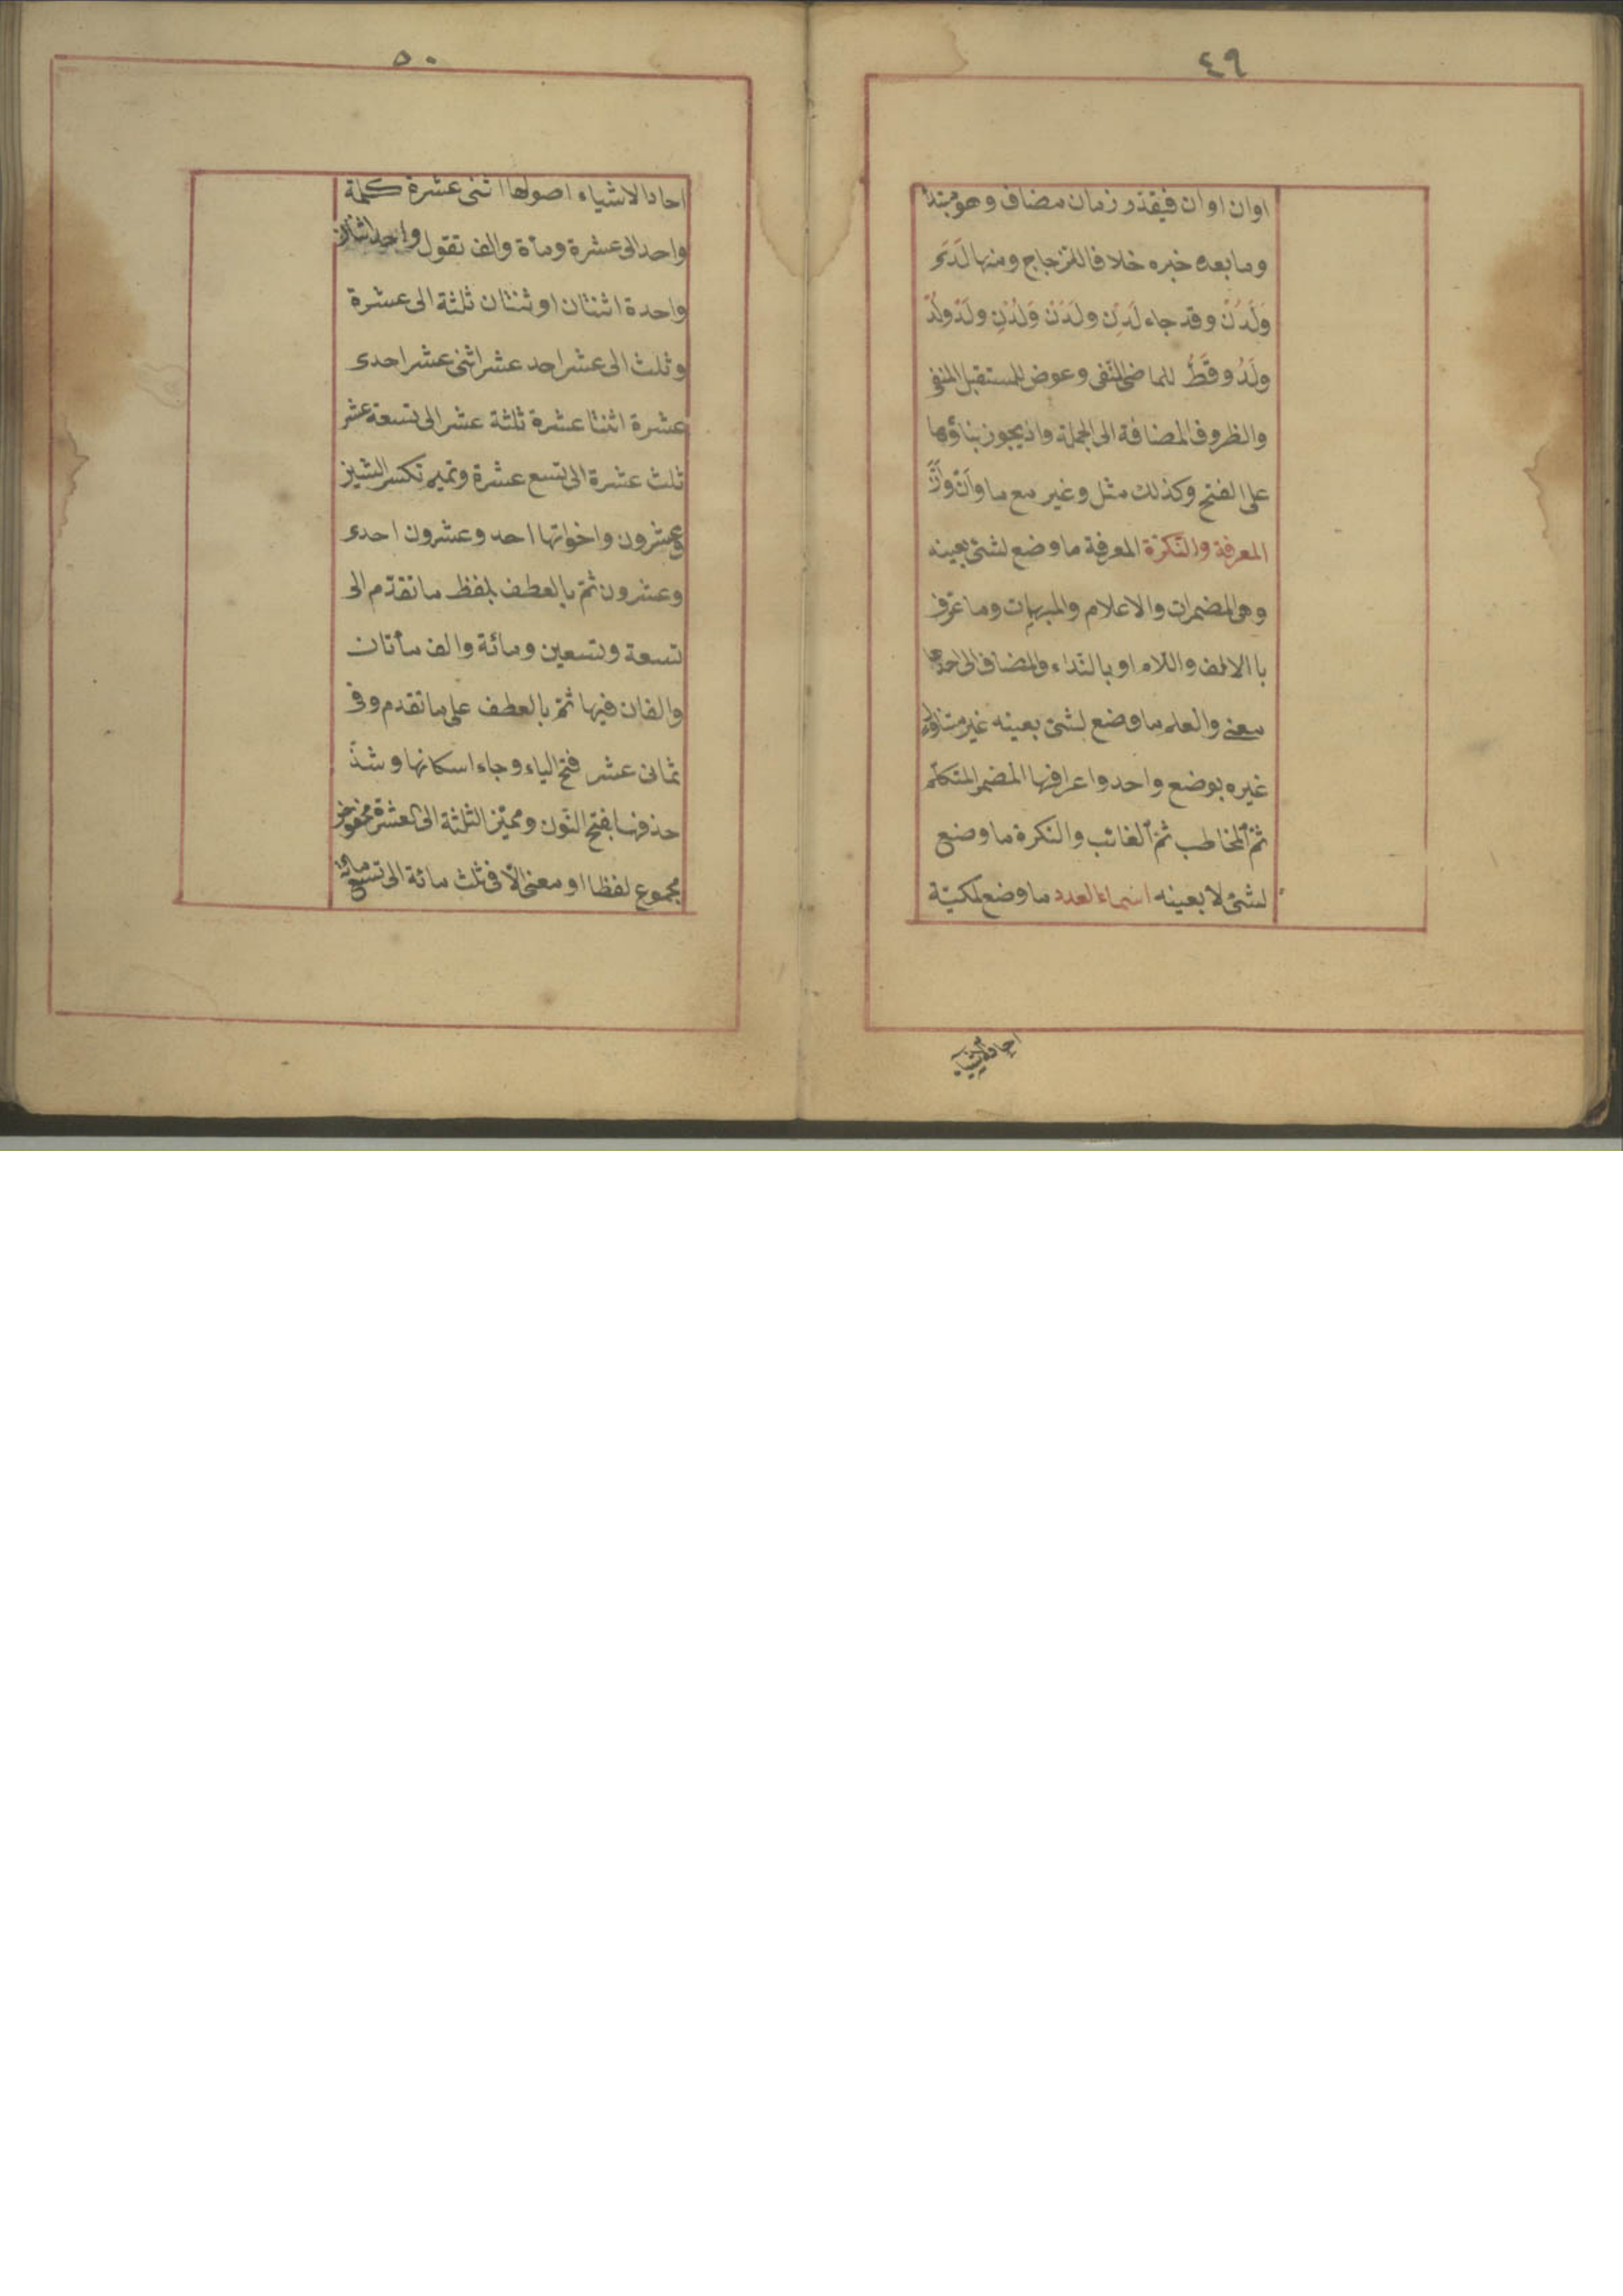 ٤٩
اوان اوان فيقدر زمان مضاف وهو مبتدأ
وما بعده خبره خلافا للزجاج ومنها لَدَى
وَلَدُنْ وقد جاء لَدِن ولَدَنْ وَلُدْنِ ولَدْ ولُدْ
ولَدُ وقَطُّ للماضى المنفى وعوض للمستقبل المنفى
والظروف المضافة الى الجملة واذ يجوز بناؤها
على الفتح وكذلك مثل وغير مع ما وَاَنْ وَاَنَّ
المعرفة والنكرة المعرفة ما وضع لشئ بعينه
وهى المضمرات والاعلام والمبهمات وما عرّف
با الالف واللام او بالنداء والمضاف الى احدها
معنى والعلم ما وضع لشئ بعينه غير متناول
غيره بوضع واحد واعرافها المضمر المتكلّم
ثمّ المخاطب ثمّ الغائب والنكرة ما وضع
لشئ لا بعينه اسماء العدد ما وضع لمكيّة
احاد الاشياء
٥٠
احاد الاشياء اصولها اثنى عشرة كلمة
واحد الى عشرة ومأة والف تقول واحد اثنان
واحدة اثنتان او ثنتان ثلثة الى عشرة
وثلث الى عشر احد عشر اثنى عشر احدى
عشرة اثنتا عشرة ثلثة عشر الى تسعة عشر
ثلث عشرة الى تسع عشرة وتميم تكسر الشين
وعشرون واخواتها احد وعشرون احدى
وعشرون ثمّ بالعطف بلفظ ما تقدّم الى
تسعة وتسعين ومائة والف مأتان
والفان فيها ثمّ بالعطف على ما تقدم وفى
ثمانى عشر فتح الياء وجاء اسكانها وشذّ
حذفها بفتح النّون ومميّز الثلثة الى العشرة مخفوض
مجموع لفظا او معنى الّا فى ثلث مائة الى تسع مائة